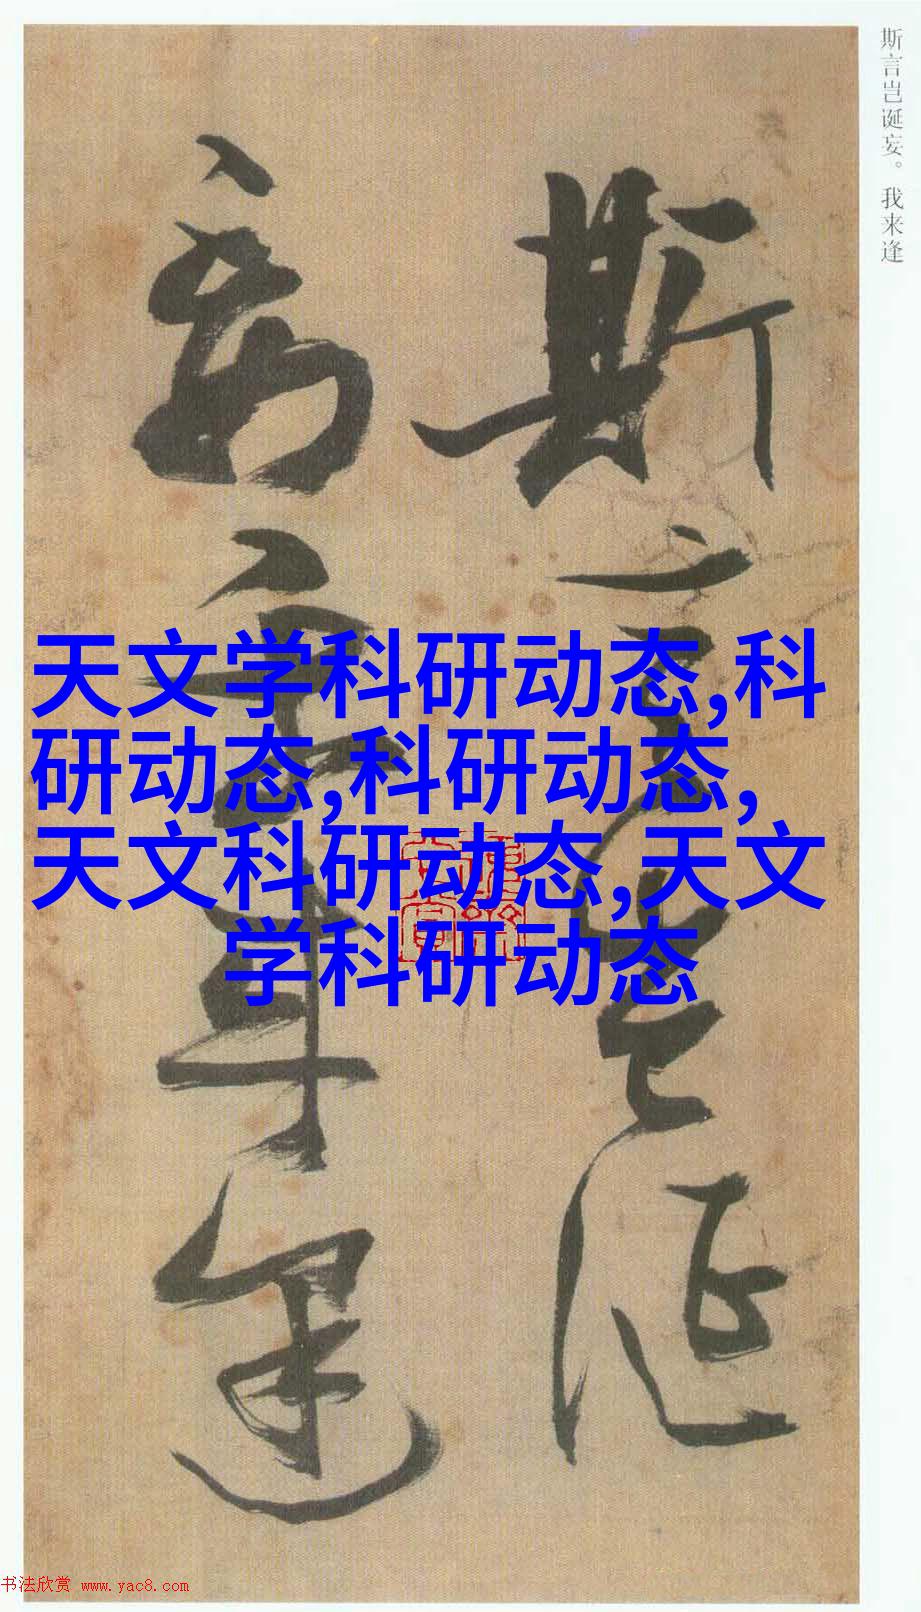 斯言岂诞妄。我来逢
斯言豈誕
妄我来逢
天文学科研动态,科
研动态,科研动态,
天文科研动态,天文
学科研动态
书法欣赏 www.yac8.com